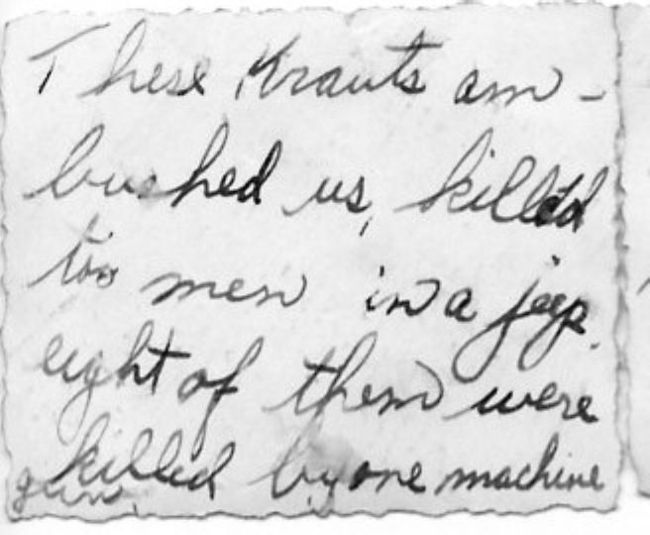 These Krauts am-
bushed us, killed
two men in a jeep.
eight of them were
killed by one machine
gun.